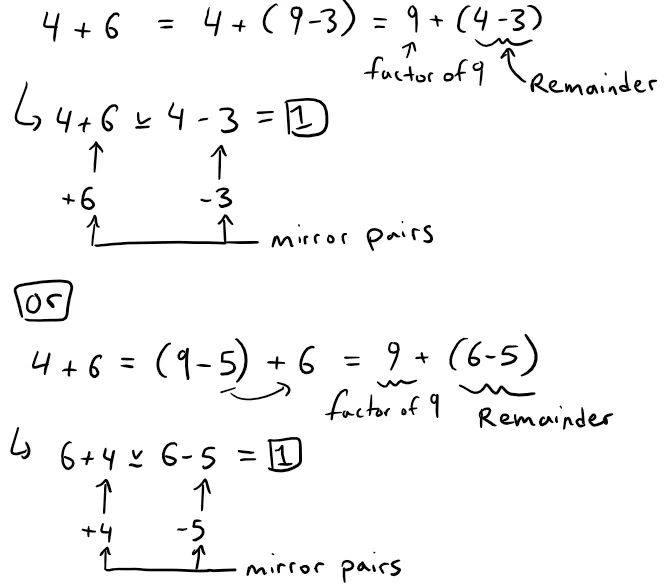 4 + 6 = 4 + (9-3) = 9 + (4-3)
factor of 9 Remainder
↳ 4+6 ⩡ 4-3 = 1
+6 -3
mirror pairs
or
4+6 = (9-5) + 6 = 9 + (6-5)
factor of 9 Remainder
↳ 6+4 ⩡ 6-5 = 1
+4 -5
mirror pairs